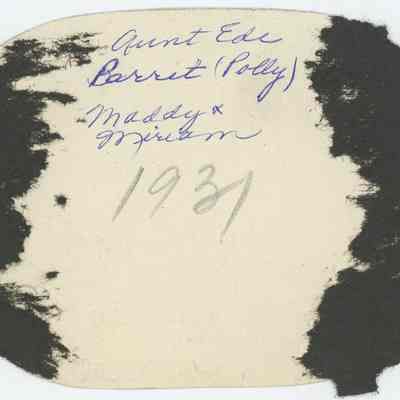 Aunt Ede
Parret (Polly)
Maddy &
Miriam
1931